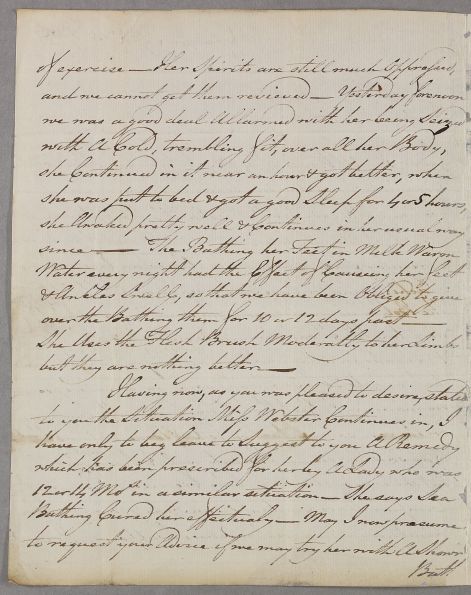 of exercise — Her Spirits are still much Oppressed,
and we cannot get them revieved — Yesterday forenoon
we was a good deal Allarmed with her being Seized
with A Cold, trembling fit, over all her Body,
she Continued in it near an hour & got better, when
she was put to bed & got a good Sleep for 4 or 5 hours,
she Awaked pretty well & Continues in her usual way
since — The Bathing her Feet in Milk Warm
Water every night had the Effect of Causeing her feet
& Ancles Swell, so that we have been Obliged to give
over the Bathing them for 10 or 12 days past —
She Uses the Flesh Brush Moderatly to her Limbs
but they are nothing better —
Having now, as you was pleased to desire, stated
to you the Situation Miss Webster Continues in, I
have only to beg leave to Suggest to you A Remedy
which has been prescribed for her by A Lady who was
12 or 14 Mos. in a similar situation — She says Sea
Bathing Cured her effectualy — May I now presume
to request your Advice if we may try her with A Shower
Bath